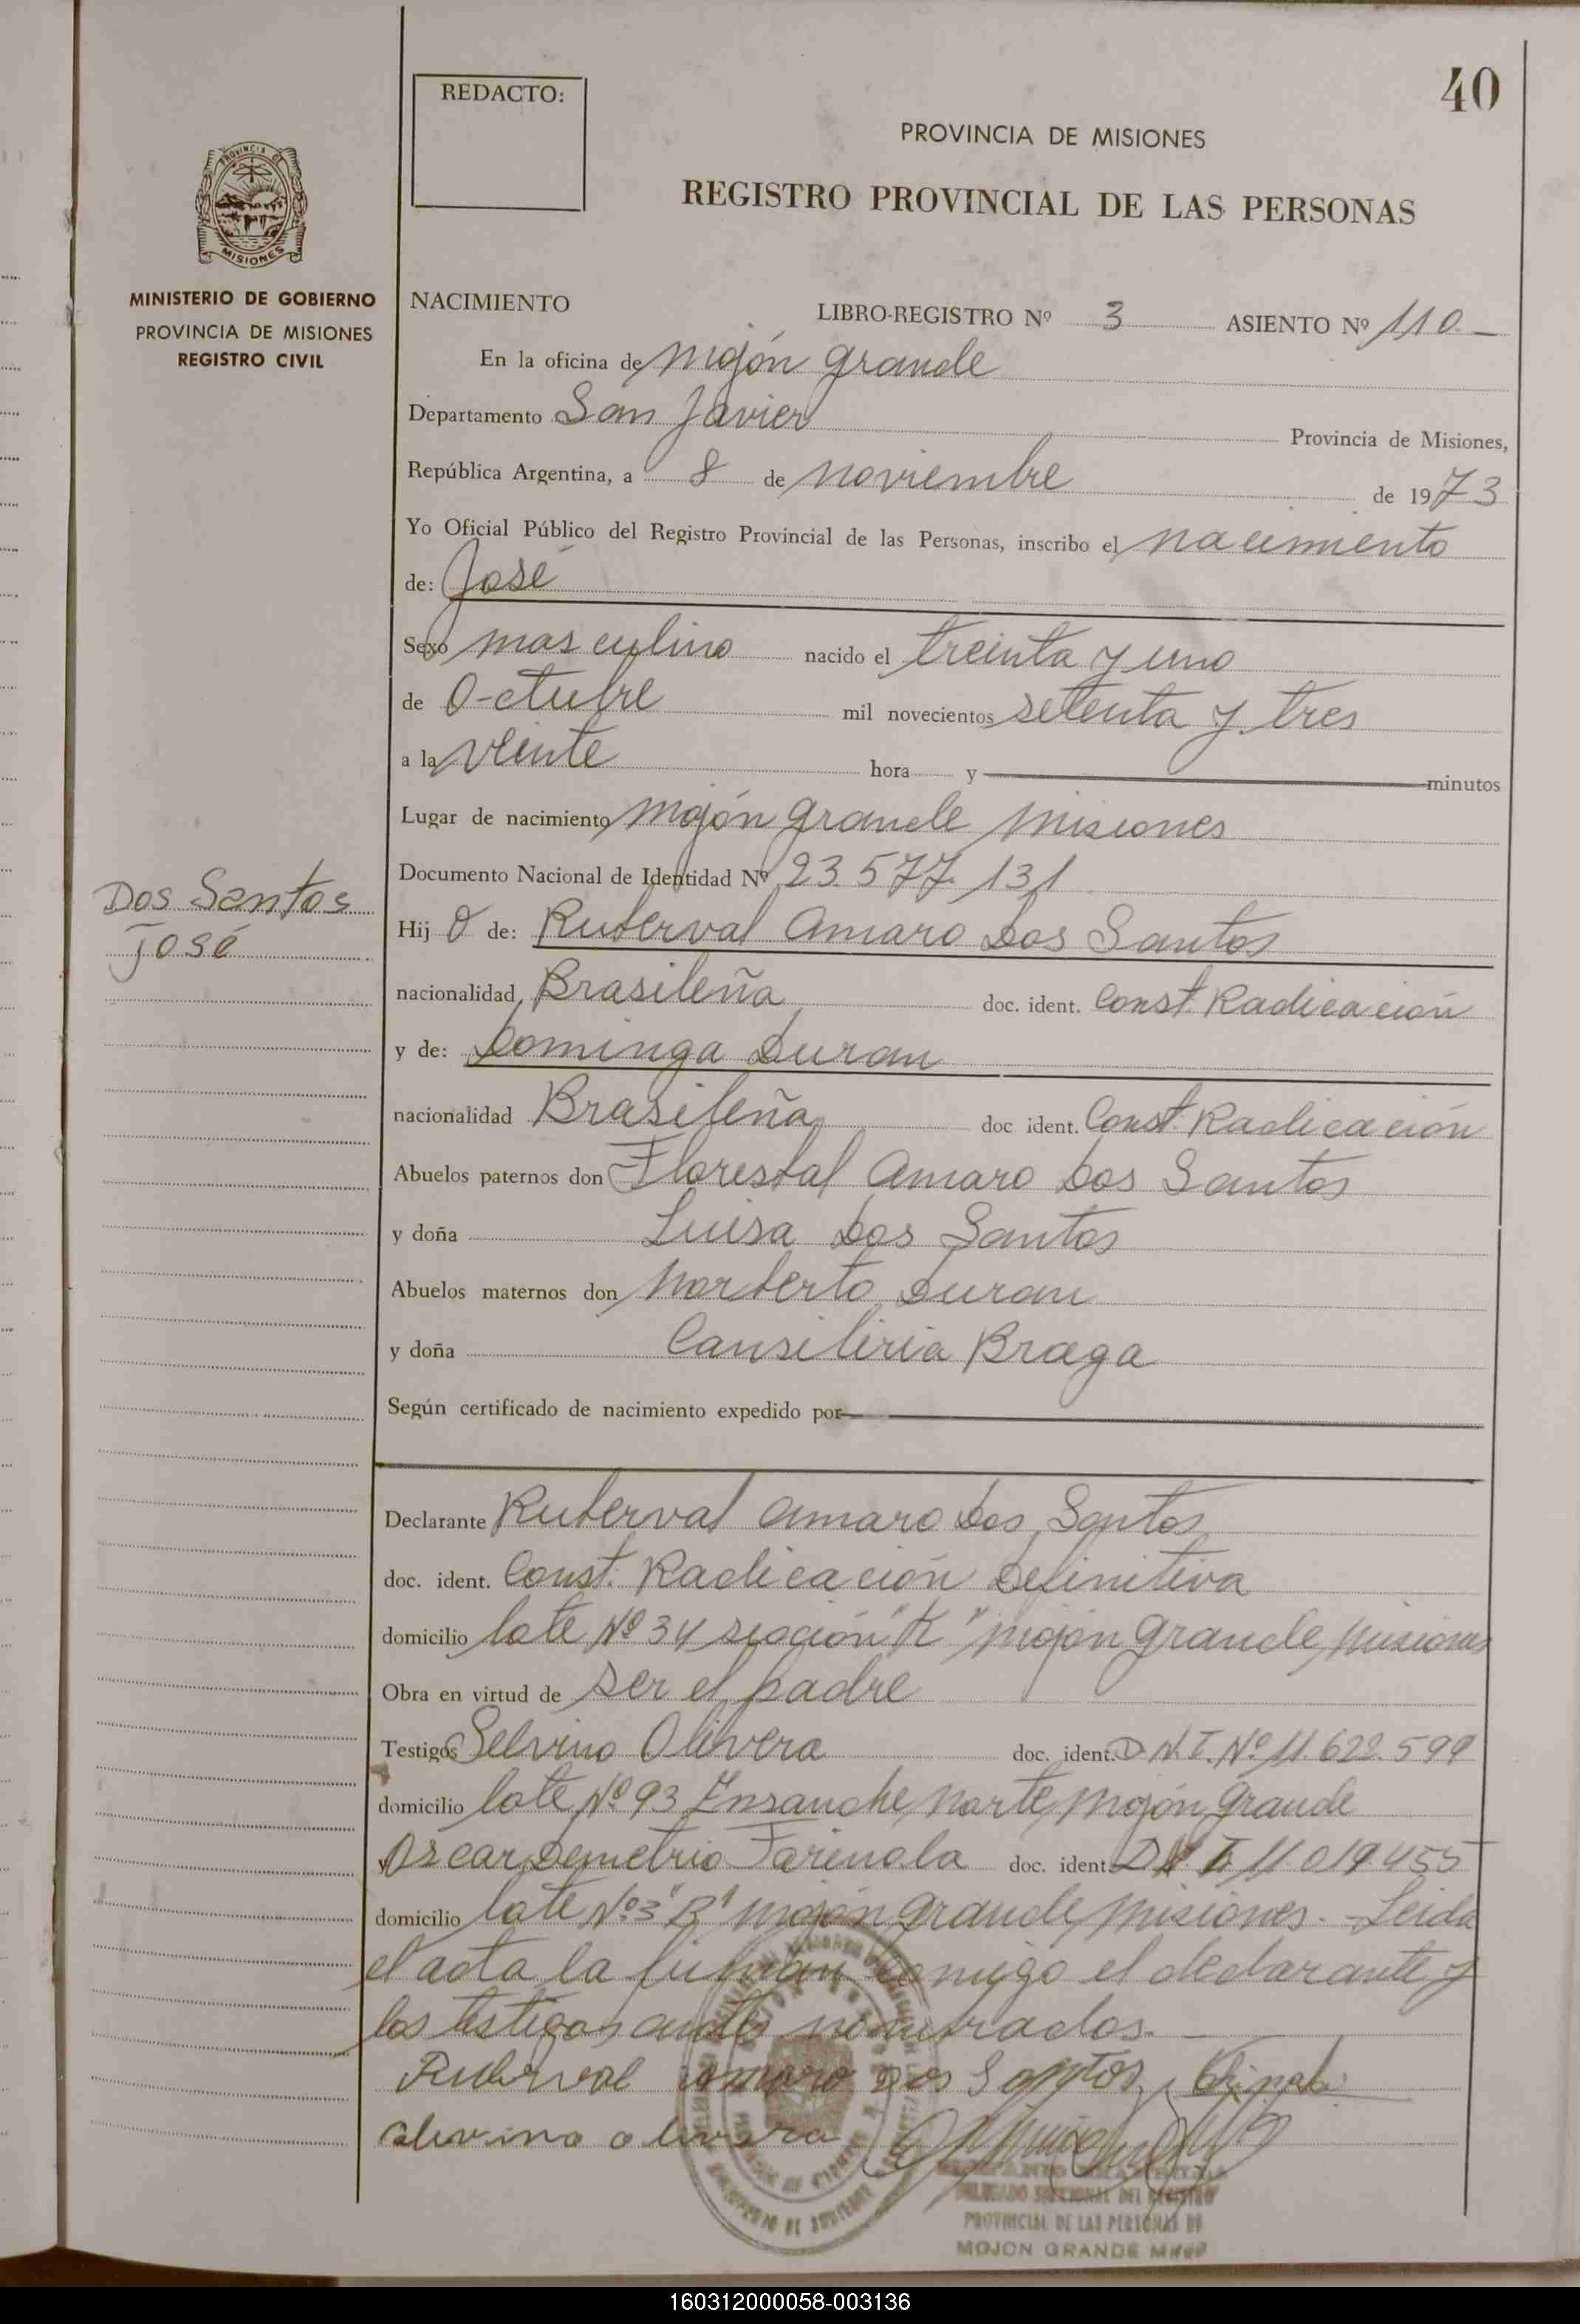 40
REDACTO:
PROVINCIA DE MISIONES
REGISTRO PROVINCIAL DE LAS PERSONAS
PROVINCIA DE
MISIONES
MINISTERIO DE GOBIERNO
PROVINCIA DE MISIONES
REGISTRO CIVIL
NACIMIENTO LIBRO-REGISTRO Nº 3 ASIENTO Nº 110
En la oficina de Mojón grande
Departamento San Javier Provincia de Misiones,
República Argentina, a 8 de noviembre de 1973
Yo Oficial Público del Registro Provincial de las Personas, inscribo el nacimiento
de: José
Sexo masculino nacido el treinta y uno
de Octubre mil novecientos setenta y tres
a la veinte hora y minutos
Lugar de nacimiento Mojón grande Misiones
Documento Nacional de Identidad Nº 23.577.131
Dos Santos
José
Hij o de: Ruberval Amaro Dos Santos
nacionalidad Brasileña doc. ident. Const. Radicación
y de: Dominga Duran
nacionalidad Brasileña doc ident. Const. Radicación
Abuelos paternos don Florestal Amaro Dos Santos
y doña Luisa Dos Santos
Abuelos maternos don Norberto Duran
y doña Cansiliria Braga
Según certificado de nacimiento expedido por
Declarante Ruberval Amaro Dos Santos
doc. ident. Const. Radicación Definitiva
domicilio lote Nº 34 sección "K" Mojón grande, Misiones
Obra en virtud de ser el padre
Testigos Selvino Olivera doc. ident. D.N.I. Nº 11.622.599
domicilio lote Nº 93 Ensanche Norte, Mojón grande
y Oscar Demetrio doc. ident. D.N.I. 11.019.455
domicilio lote Nº 3 "B" Mojón grande, Misiones.- Leida
el acta la firman comigo el declarante y
los testigos antes nombrados.-
Ruberval Amaro Dos Santos
olivera
DELEGADO SECCIONAL DEL REGISTRO
PROVINCIAL DE LAS PERSONAS DE
MOJON GRANDE
160312000058-003136